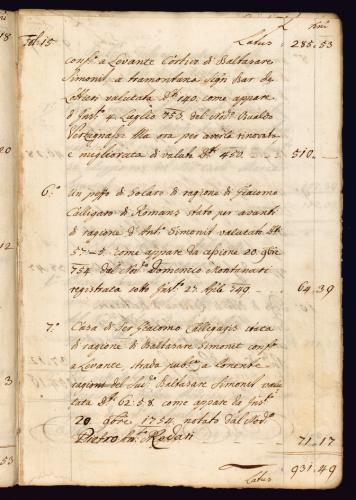 Latus 285.53
conf.a a Levante Cortivo di Baltasare
Simonit, a tramontana Sign Bar. de
valutata D.ti 140. come appare
d' Inst. 4. Luglio 753. del Nod.o Osualdo
Ma ora per averla rinovata
e migliorata di valuta D.ti 450. 510.
6.o Un pezzo di Solaro di ragione di Giacomo
Calligaro di Romans stato per avanti
di ragione d' Ant.o Simonit valutato D.ti
57-5. come appare da cessione 20. 9bre
754. dal Nod.o Domenico
registrata sotto Inst. 27. Aple 749 64.39
7.o Casa di Ser Giacomo Calligaris stata
di ragione di Baltasare Simonit conf.a
a Levante strada pub.ca a Ponente
ragioni del Sud.o Baltasare Simonit valu
tata D.ti 62:58. come appare da Inst.
20. 9bre 1754. notato dal Nod.o
Pietro Ant.o Rodari 71.17
Latus 931.49